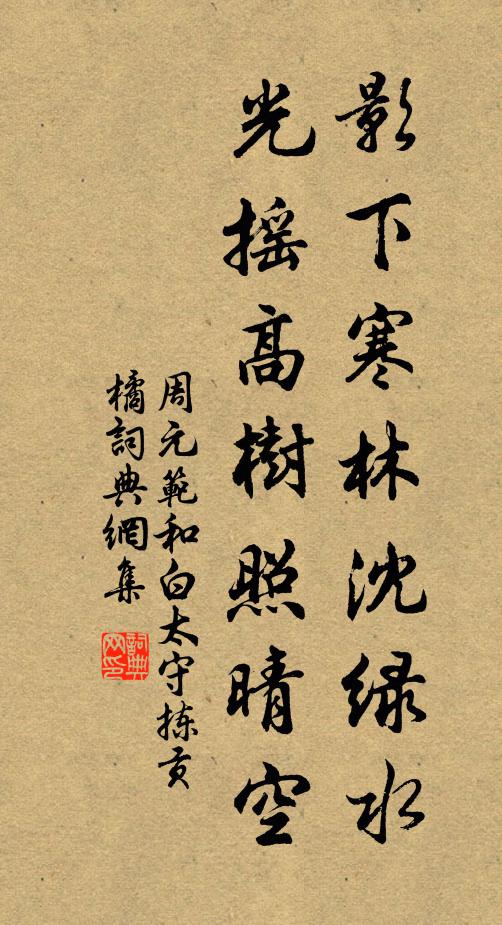 影下寒林沈绿水
光摇高樹照晴空
周元範和白太守拣贡
橘詞典網集
詞典网印